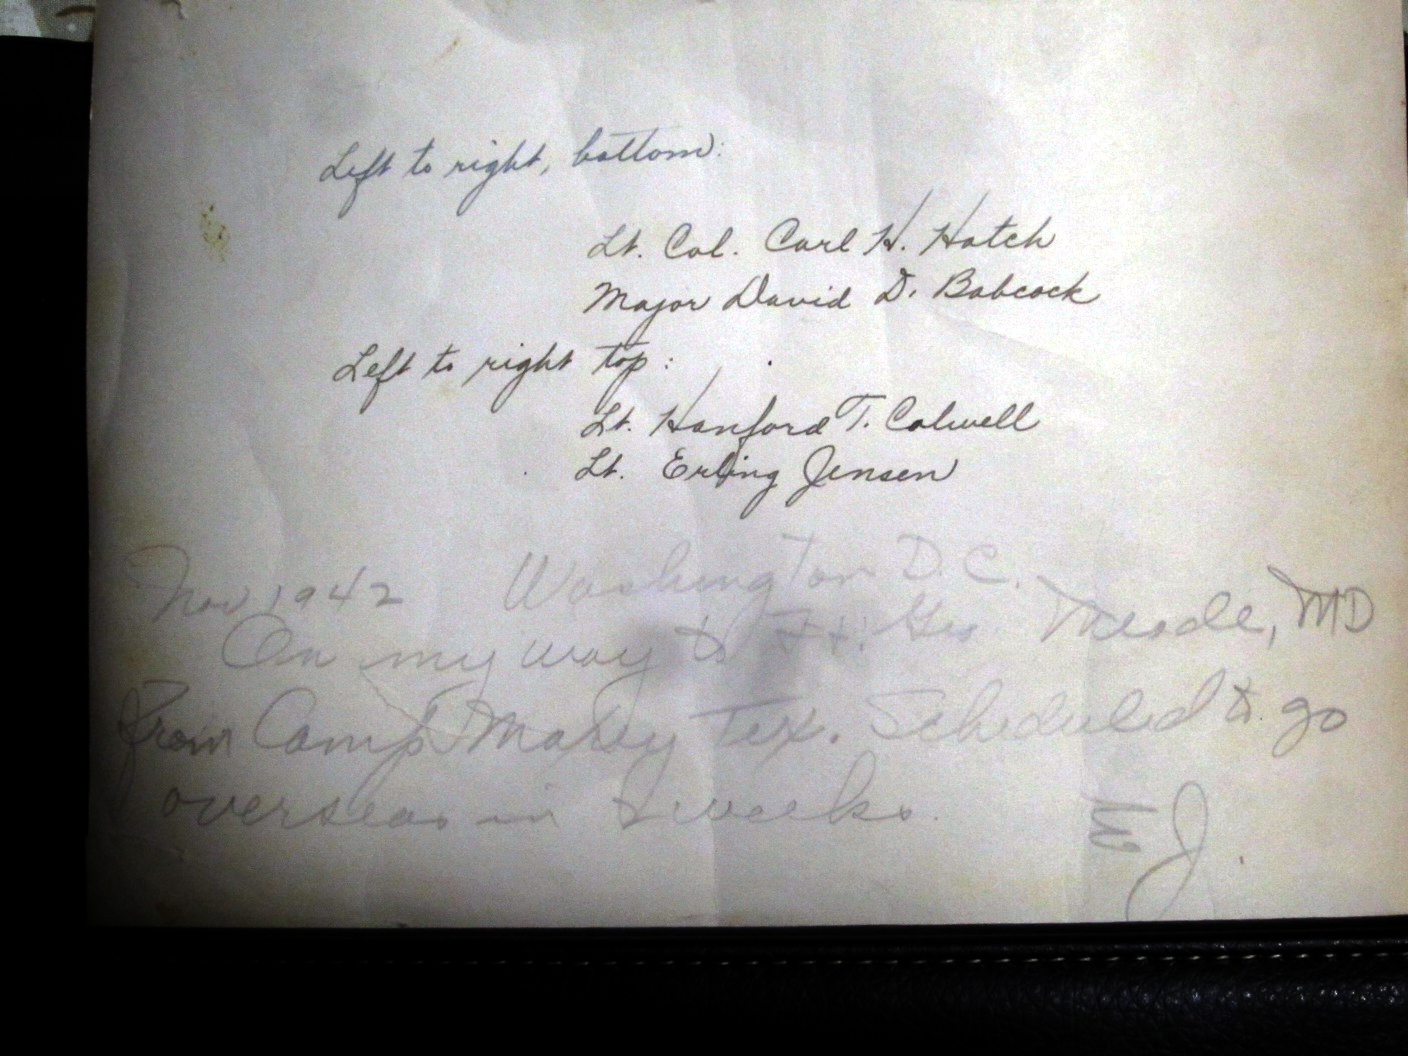 Left to right, bottom:
Lt. Col. Carl H. Hatch
Major David D. Babcock
Left to right top:
Lt. Hanford T. Colwell
Lt. Erling Jensen
Nov 1942 Washington D.C.
On my way to Ft. Geo. Meade, MD
From Camp Maxey Tex. Scheduled to go
overseas in 2 weeks.
EJ.